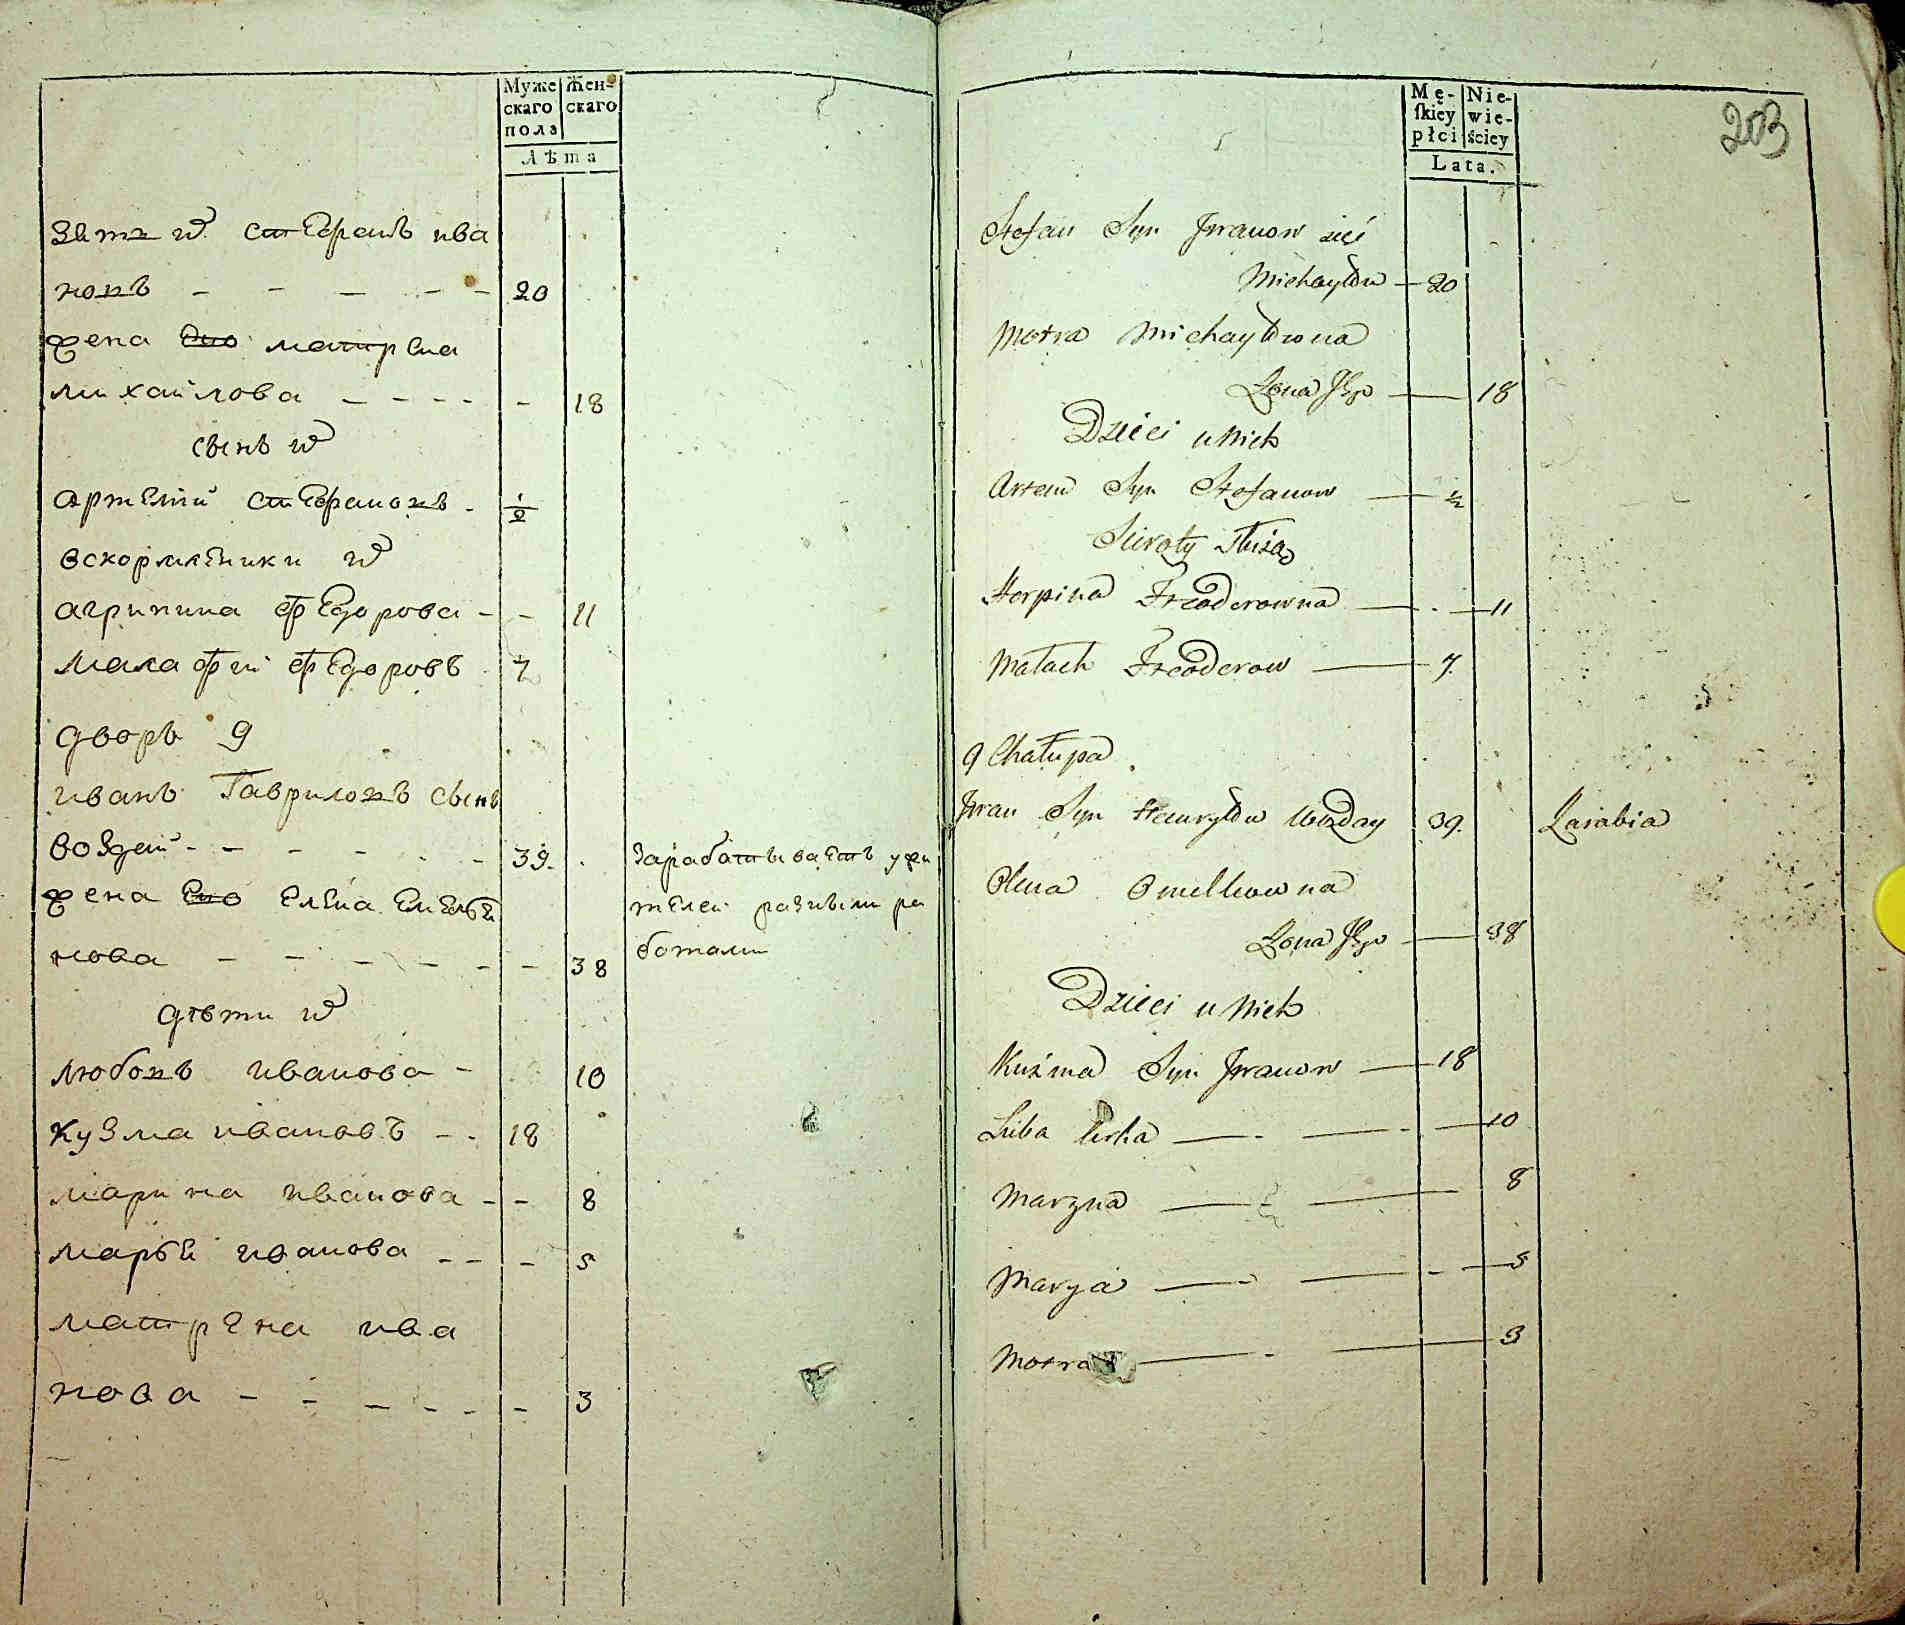 Муже Жен-
скаго скаго
пола
Лѣта
зять ихъ стефанъ ива
новъ - - - - - 20
жена ево матрена
михаилова - - - - - 18
сынъ ихъ
артемий стефановъ - 1/2
вскормленики ихъ
агрипина федорова - - 11
малафий федоровъ 7
дворъ 9
иванъ Гавриловъ сынъ
воздай - - - - - 39 зарабатываетъ у жи
жена ево елена емелья телей разными ра
нова - - - - - - 38 ботами
дѣти ихъ
любовъ иванова - 10
кузма ивановъ - - 18
марина иванова - - 8
марья иванова - - - 5
матрена ива
нова - - - - - - 3
Mę- Nie-
skiey wie-
płci ściey
Lata.
203
Stefan Syn Iwanow zięć
Michayłow 20
Motra Michayłowna
Żona Jego 18
Dzieci u Nich
Artem Syn Stefanow 1/2
Sieroty Służą
Horpina Fteoderowna 11
Małach Fteoderow 7
9 Chałupa
Iwan Syn Hawryłow Wozday 39 Zarabia
Olena Omelkowna
Żona Jego 38
Dzieci u Nich
Kuźma Syn Iwanow 18
Luba Curka 10
Maryna 8
Marya 5
Motra 3